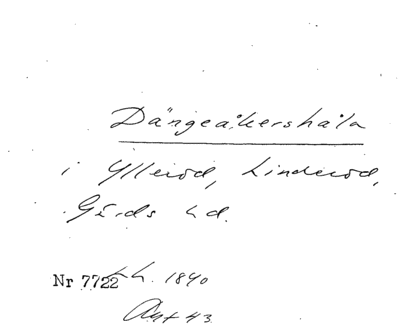 Dängeåkershåla
i Ylleröd, Linderöd,
Gärds hd.
Nr 7722 1840
Akt 43